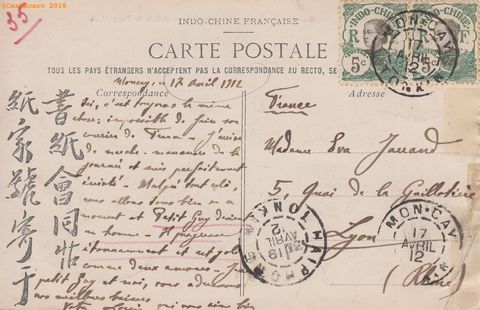 ©Cartocaro 2018
35
INDO-CHINE FRANÇAISE
INDO-CHINE
INDO-CHINE
R F
R F
5c
5c
CARTE POSTALE
TOUS LES PAYS ÉTRANGERS N'ACCEPTENT PAS LA CORRESPONDANCE AU RECTO, SE
Correspondance
Adresse
Moncay 17 Avril 1912
Oui, c'est toujours la même
chose; impossible de faire son
courrier de
de marche
et suis parfaitement
éreinté. Malgré tout cela,
nous allons tous bien en ce
moment et Petit Guy devient
un homme. Il progresse
étonnamment et est joli
comme deux amours.
petit Guy et moi, vous adressons
nos meilleurs baisers
Votre Louis qui vous aime bien
書紙會同壯
紙家號寄于
France
Madame Eva Jarrand
5, Quai de la Guillotière
Lyon
(Rhône)
MON-CAY
17
AVRIL
12
TONKIN
HAIPHONG
TONKIN
19
AVRIL
12
MON-CAY
17
AVRIL
12